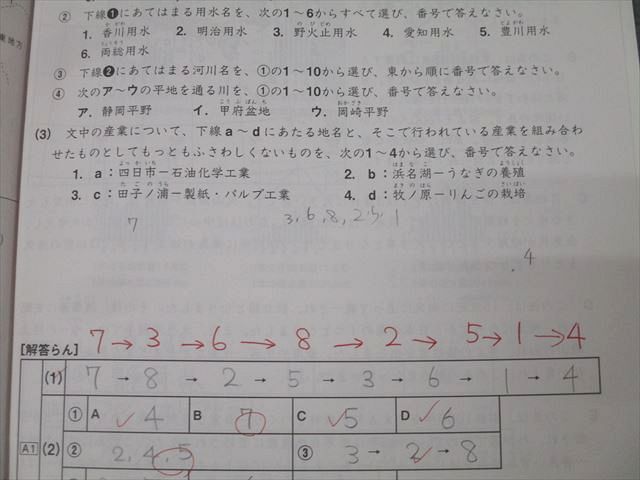 ② 下線❶にあてはまる用水名を、次の1～6からすべて選び、番号で答えなさい。
1. 香川用水 2. 明治用水 3. 野火止用水 4. 愛知用水 5. 豊川用水
6. 両総用水
③ 下線❷にあてはまる河川名を、①の1～10から選び、東から順に番号で答えなさい。
④ 次のア～ウの平地を通る川を、①の1～10から選び、番号で答えなさい。
ア. 静岡平野 イ. 甲府盆地 ウ. 岡崎平野
(3) 文中の産業について、下線a～dにあたる地名と、そこで行われている産業を組み合わ
せたものとしてもっともふさわしくないものを、次の1～4から選び、番号で答えなさい。
1. a：四日市－石油化学工業 2. b：浜名湖－うなぎの養殖
3. c：田子ノ浦－製紙・パルプ工業 4. d：牧ノ原－りんごの栽培
7 3,6,8,2,5,1
4
7→3→6→8→2→5→1→4
[解答らん]
(1) 7→8→2→5→3→6→1→4
① A 4 B 7 C 5 D 6
A1 (2) ② 2,4,5 ③ 3→2→8